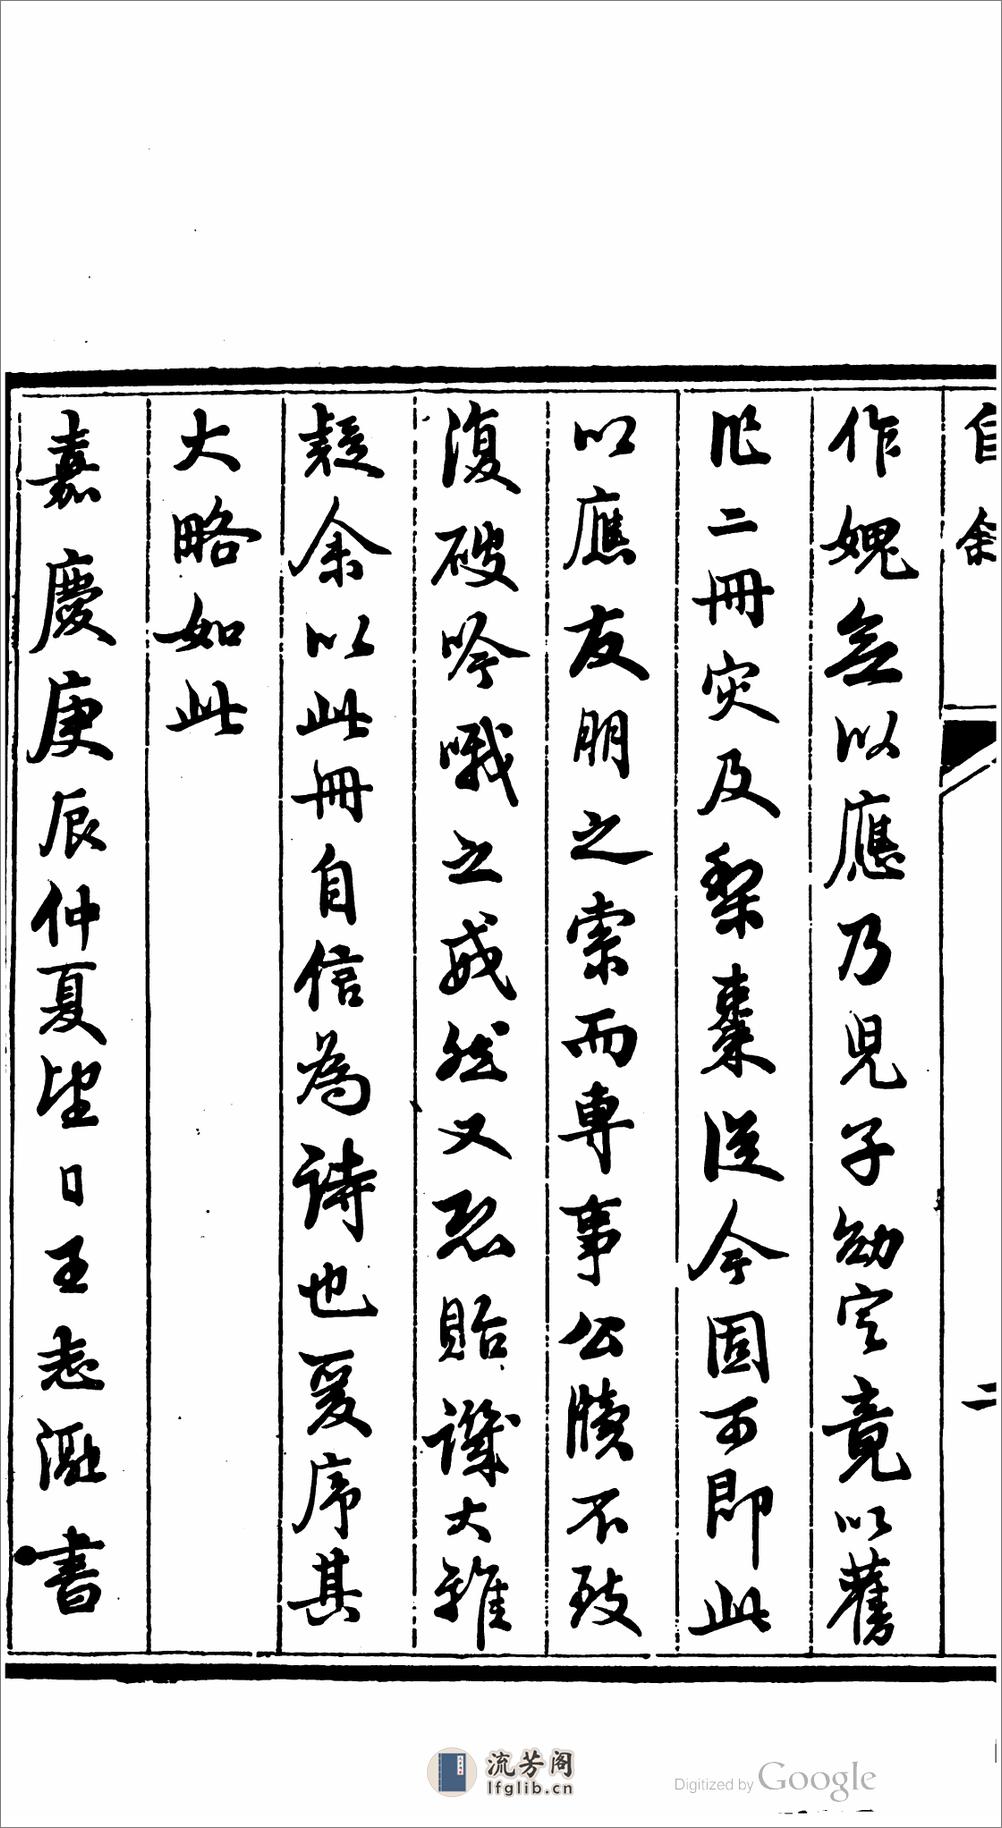 自余
二
作媿無以應乃兒子幼定竟以舊
作二冊灾及梨棗從今固可即此
以應友朋之索而專事公牘不致
復破吟哦之戒然又恐貽譏大雅
疑余以此冊自信為詩也爰序其
大略如此
嘉慶庚辰仲夏望日王志瀜書
流芳阁
lfglib.cn
Digitized by Google